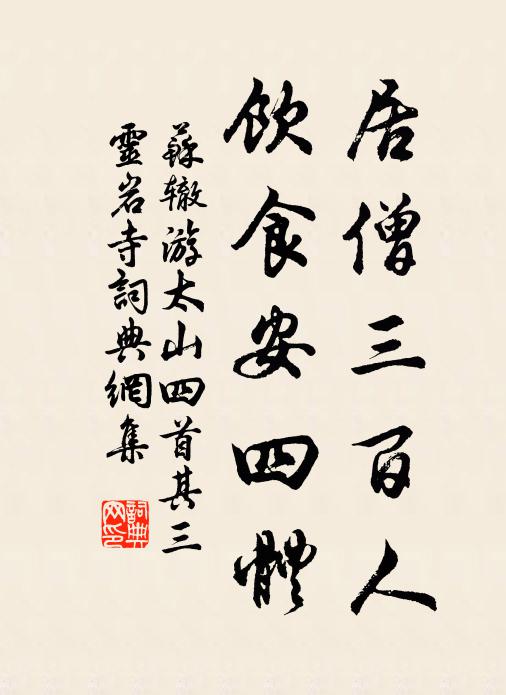 居僧三百人
飲食安四體
蘇辙游太山四首其三
靈岩寺詞典網集
詞典网印